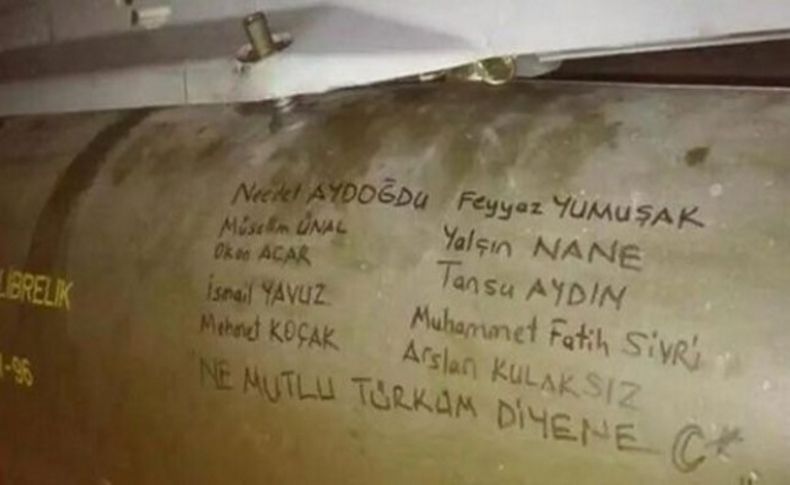 Necdet AYDOĞDU
Müselim ÜNAL
Okan ACAR
İsmail YAVUZ
Mehmet KOÇAK
Feyyaz YUMUŞAK
Yalçın NANE
Tansu AYDIN
Muhammet Fatih SİVRİ
Arslan KULAKSIZ
NE MUTLU TÜRKÜM DİYENE C*
LIBRELIK
-96